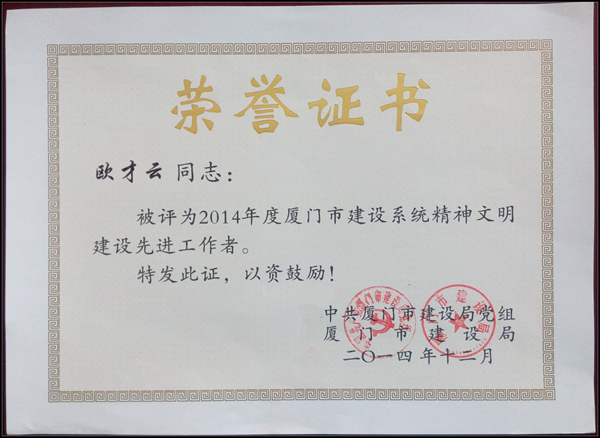 荣誉证书
欧才云 同志：
被评为2014年度厦门市建设系统精神文明
建设先进工作者。
特发此证，以资鼓励！
中共厦门市建设局党组
厦门市建设局
二〇一四年十二月